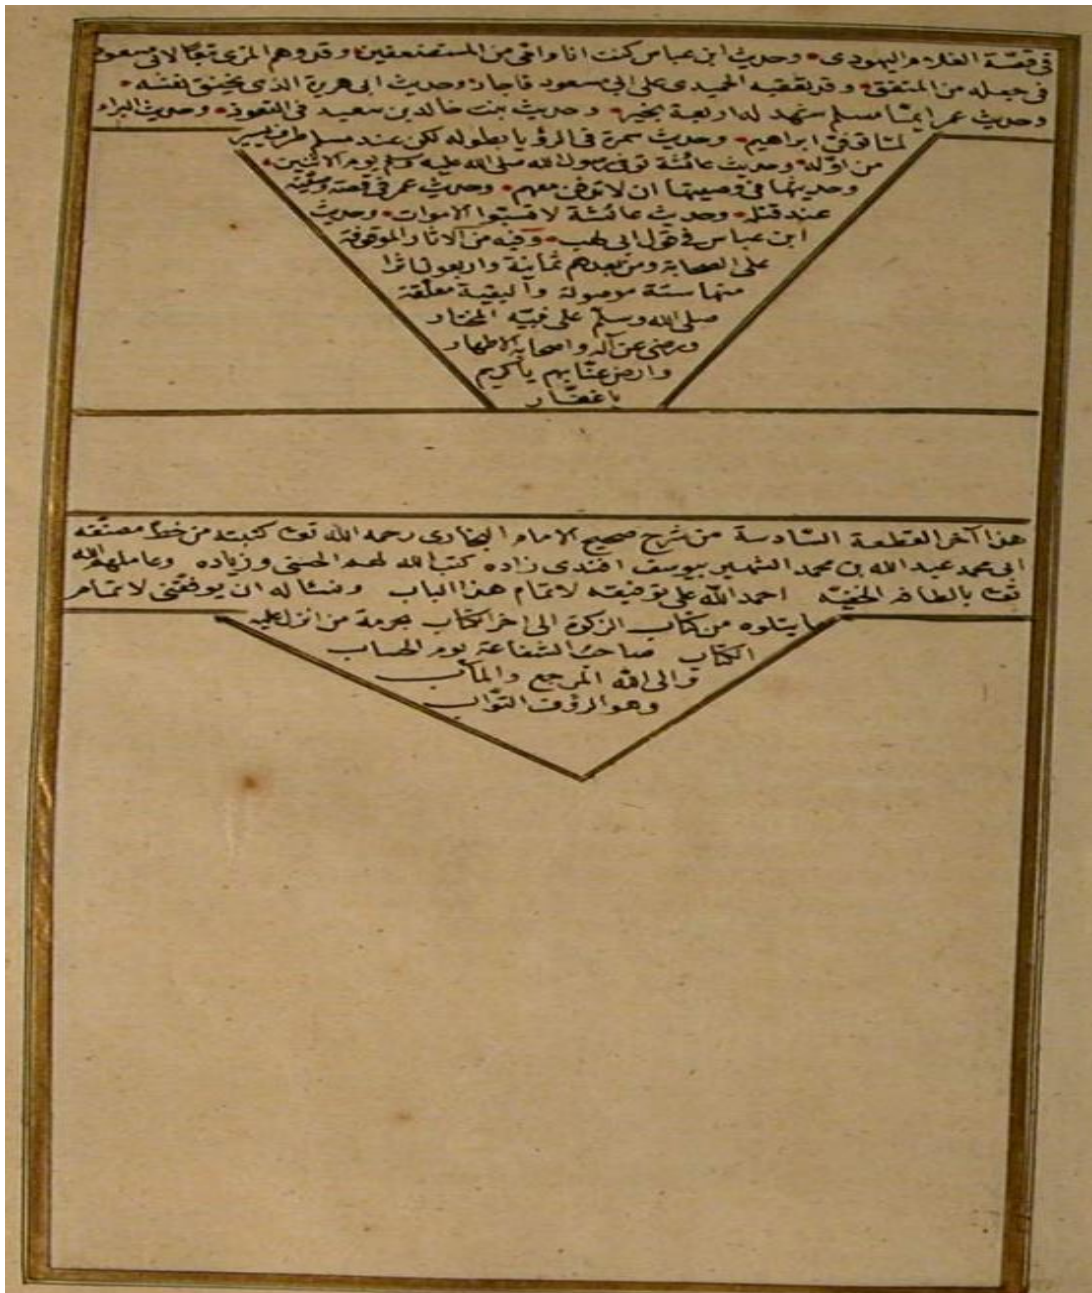 فى قصة الغلام اليهودى • وحديث ابن عباس كنت انا وامى من المستضعفين وقد وهم المزى تبعا لابى مسعود
فى جعله من المتفق • وقد تعقبه الحميدى على ابى مسعود فاجاد • وحديث ابى هريرة الذى يخنق نفسه •
وحديث عمر ايما مسلم شهد له اربعة بخير • وحديث بنت خالد بن سعيد فى التعوذ • وحديث البراء
لما توفى ابراهيم • وحديث سمرة فى الرؤيا بطوله لكن عند مسلم طرف يسير
من اوله • وحديث عائشة توفى رسول الله صلى الله عليه وسلم يوم الاثنين •
وحديثها فى وصيتها ان لا تدفن معهم • وحديث عمر فى قصة وصيته
عند قتله • وحديث عائشة لا تسبوا الاموات • وحديث
ابن عباس فى قول ابى لهب • وفيه من الآثار الموقوفة
على الصحابة ومن بعدهم ثمانية واربعون اثرا
منها ستة موصولة والبقية معلقة
صلى الله وسلم على نبيه المختار
ورضى عن آله واصحابه الاطهار
وارض عنا بهم يا كريم
يا غفار
هذا آخر القطعة السادسة من شرح صحيح الامام البخارى رحمه الله تعا كتبته من خط مصنفه
ابى محمد عبد الله بن محمد الشهير بيوسف افندى زاده كتب الله لهم الحسنى وزياده وعاملهم الله
تعا بالطافه الخفيه احمد الله على توفيقه لاتمام هذا الباب ونسئاله ان يوفقنى لاتمام
ما يتلوه من كتاب الزكوة الى اخر الكتاب بحرمة من انزل عليه
الكتاب صاحب الشفاعة يوم الحساب
والى الله المرجع والمآب
وهو الرؤف التواب